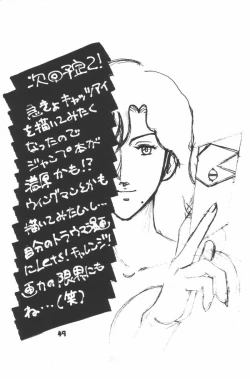 次の予定2!
急きょキャッツアイ
を描いてみたく
なったので
ジャンプ本が
濃厚かも!?
ウィングマンとかも
描いてみたいし…
自分のトラウマ漫画
にLets!チャレンジ!
画力の限界にも
ね…(笑)
49